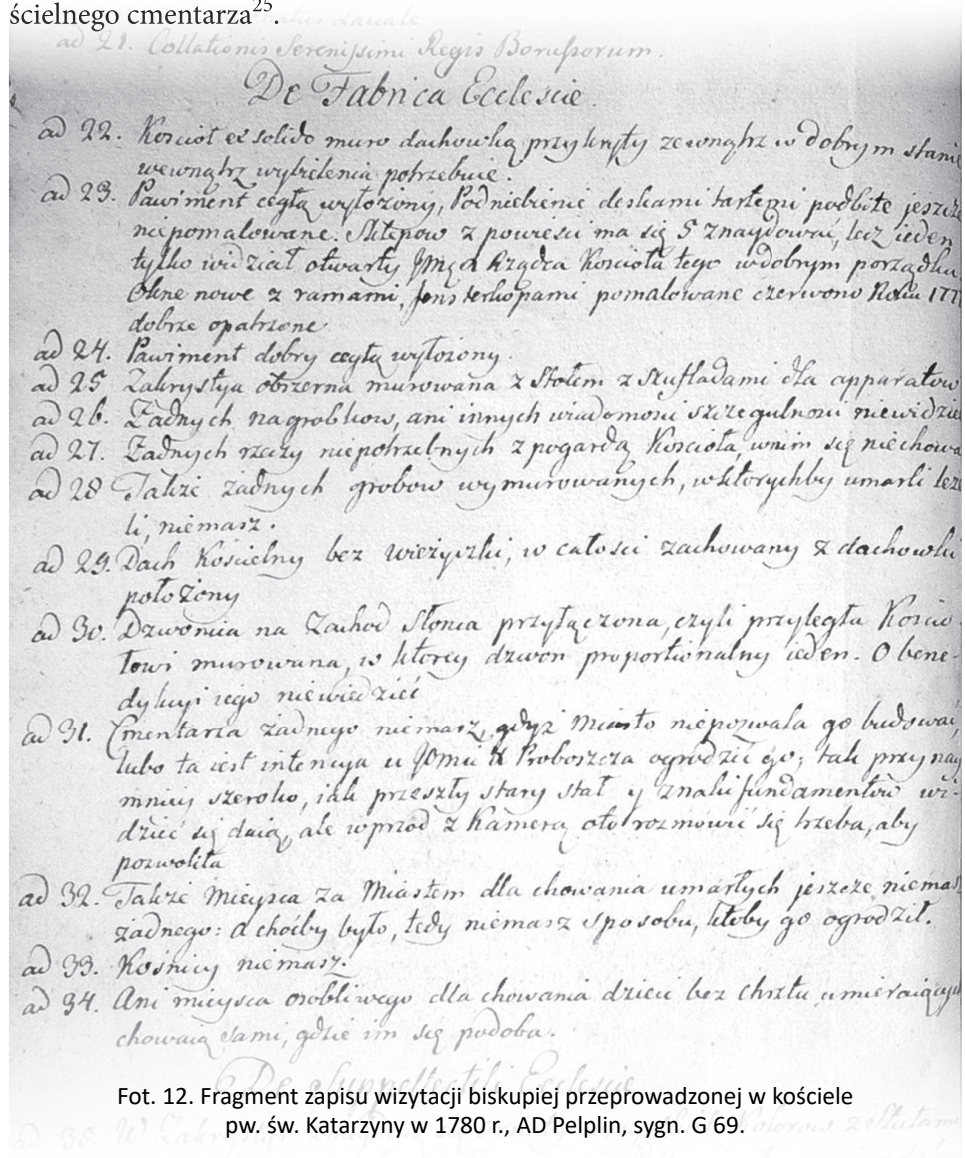 ścielnego cmentarza25.
ad 21. Collationis Serenissimi Regis Borussorum.
De Fabrica Ecclesie
ad 22. Kościoł ex solido muro dachowką przykryty zewnątrz w dobrym stanie
wewnątrz wybielenia potrzebuie.
ad 23. Pawiment cegłą wyłożony, Podniebienie deskami tartemi podbite jeszcze
niepomalowane. Sklepow z powieści ma się 5 znaydować, lecz ieden
tylko widział otwarty Jmć X Rządca Kościoła tego w dobrym porządku
Okne nowe z ramami, pomalowane czerwono Roku 177
dobrze opatrzone
ad 24. Pawiment dobry cegłą wyłożony.
ad 25 Zakrystya obszerna murowana z Stołem z szufladami dla apparatow
ad 26. Żadnych nagrobkow, ani innych wiadomości szczegulności niewidzie
ad 27. Żadnych rzeczy niepotrzebnych z pogardą Kościoła wnim się niechowa
ad 28 Także żadnych grobow wymurowanych, wktorychby umarli leże
li, niemasz.
ad 29. Dach Kościelny bez wieżyczki, w całości zachowany z dachowki
położony
ad 30. Dzwonica na Zachod Słonca przyłączona, czyli przyległa Kościo
łowi murowana, w ktorey dzwon proportionalny ieden. O bene-
dykcyi iego niewiedzieć
ad 31. Cmentarza żadnego niemasz, gdyż Miasto niepozwala go budować,
lubo ta iest intencya u Jmci X Proboszcza ogrodzić go; tak przynay
mniey szeroko, iak przeszły stary stał y znaki fundamentow wi-
dzieć się daią, ale wprzod z Kamerą oto rozmowić się trzeba, aby
pozwoliła
ad 32. Także Mieysca za Miastem dla chowania umarłych jeszcze niemasz
żadnego: a choćby było, tedy niemasz sposobu, ktoby go ogrodził.
ad 33. Kośnicy niemasz.
ad 34. Ani mieysca osobliwego dla chowania dzieci bez chrztu umieraiących
chowaią sami, gdzie im się podoba.
De Suppellectili Ecclesie
Fot. 12. Fragment zapisu wizytacji biskupiej przeprowadzonej w kościele
pw. św. Katarzyny w 1780 r., AD Pelplin, sygn. G 69.